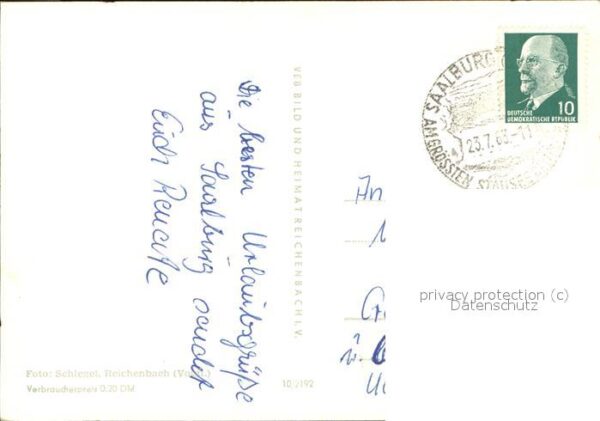 Die besten Urlaubsgrüße
aus Saalburg sendet
Euch Renate
VEB BILD UND HEIMAT REICHENBACH I. V.
SAALBURG
AM GRÖSSTEN STAUSEE
23.7.63-11
10
DEUTSCHE
DEMOKRATISCHE REPUBLIK
An
privacy protection (c)
Datenschutz
Foto: Schlegel, Reichenbach (Vogtl.)
Verbraucherpreis 0.20 DM